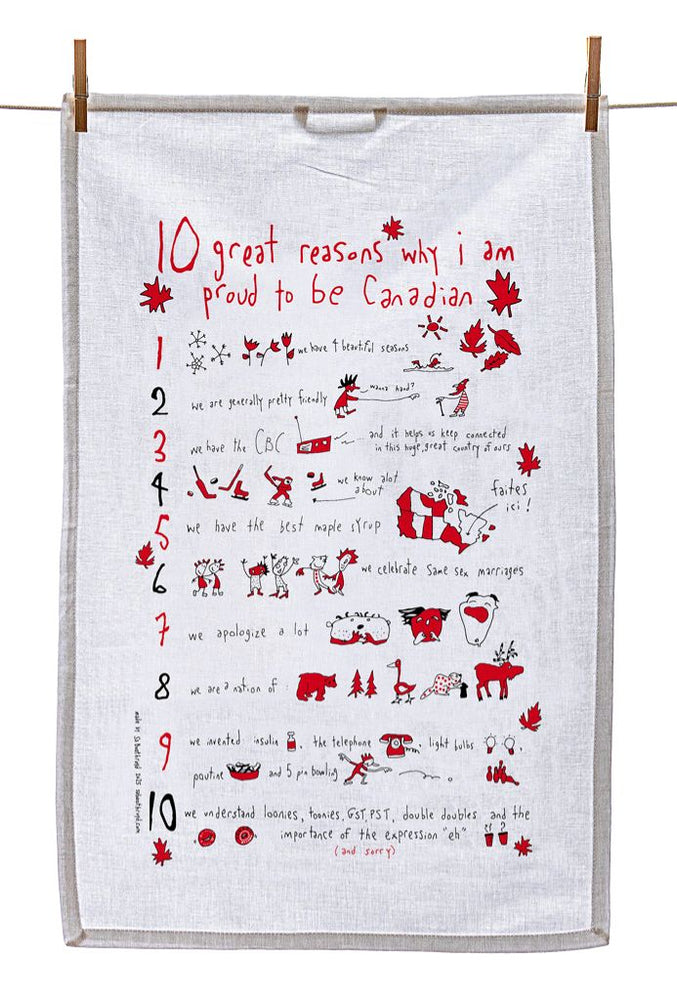 10 great reasons why i am
proud to be Canadian
1 we have 4 beautiful seasons
2 we are generally pretty friendly
wanna hand?
3 we have the CBC
and it helps us keep connected
in this huge, great country of ours
4 we know alot
about
5 we have the best maple syrup
faites
ici !
6 we celebrate same sex marriages
7 we apologize a lot
8 we are a nation of :
9 we invented insulin , the telephone , light bulbs ,
poutine and 5 pin bowling
10 we understand loonies, toonies, GST, PST, double doubles and the
importance of the expression "eh"
(and sorry)